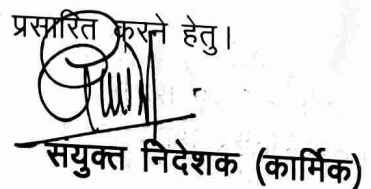 प्रसारित करने हेतु।
संयुक्त निदेशक (कार्मिक)